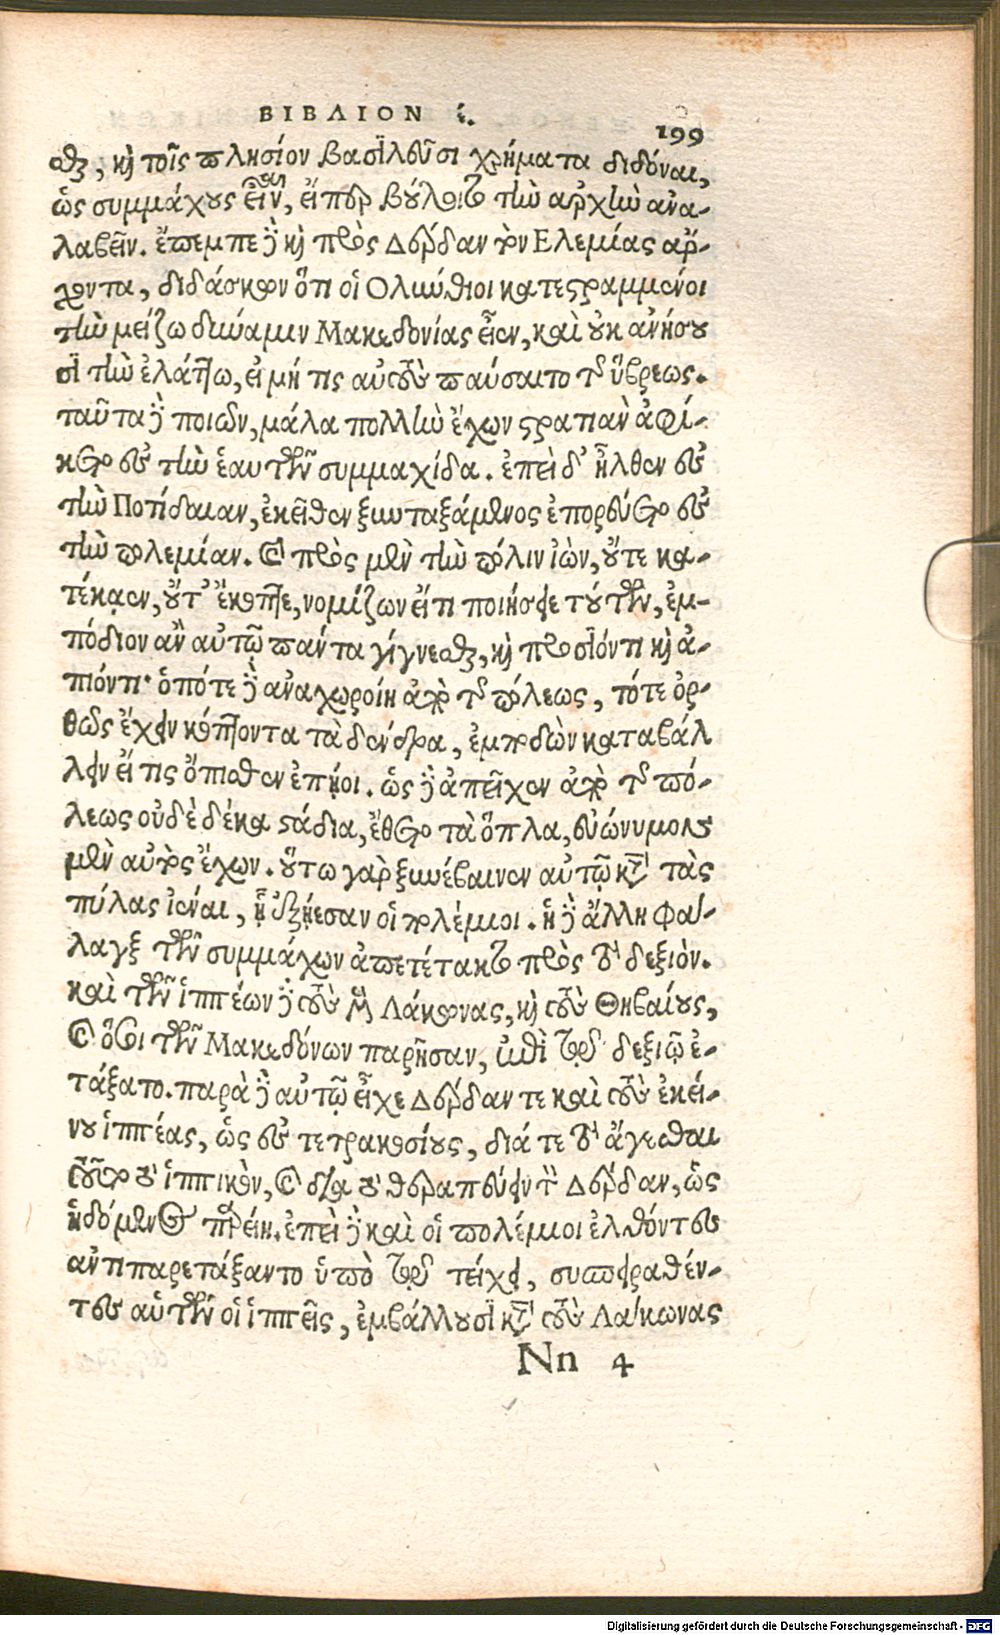 ΒΙΒΛΙΟΝ έ.
199
σθαι, καὶ τοῖς πλησίον βασιλεῦσι χρήματα διδόναι,
ὡς συμμάχους εἶναι, εἴπερ βούλοιτο τὴν ἀρχὴν ἀνα-
λαβεῖν. ἔπεμπε δὲ καὶ πρὸς Δέρδαν τὸν Ελεμίας ἄρ-
χοντα, διδάσκων ὅτι οἱ Ολιύθιοι κατεστραμμένοι
τὴν μείζω δύναμιν Μακεδονίας εἶεν, καὶ οὐκ ἀνήσου
σι τὴν ἐλάττω, εἰ μή τις αὐτοὺς παύσαιτο τῆς ὕβρεως.
ταῦτα δὲ ποιῶν, μάλα πολλὴν ἔχων στρατιὰν ἀφί-
κετο εἰς τὴν ἑαυτῶν συμμαχίδα. ἐπεὶ δ' ἦλθεν εἰς
τὴν Ποτίδαιαν, ἐκεῖθεν ξυνταξάμενος ἐπορεύετο εἰς
τὴν πολεμίαν. καὶ πρὸς μὲν τὴν πόλιν ἰὼν, οὔτε κα-
τέκαεν, οὔτ' ἔκοπτε, νομίζων εἴ τι ποιήσειε τούτων, ἐμ-
πόδιον ἂν αὐτῷ πάντα γίγνεσθαι, καὶ προσιόντι καὶ ἀ-
πιόντι· ὁπότε δὲ ἀναχωροίη ἀπὸ τῆς πόλεως, τότε ὀρ-
θῶς ἔχειν κόπτοντα τὰ δένδρα, ἐμποδὼν καταβάλ
λειν εἴ τις ὄπισθεν ἐπῄοι. ὡς δὲ ἀπεῖχεν ἀπὸ τῆς πό-
λεως οὐδὲ δέκα στάδια, ἔθετο τὰ ὅπλα, εὐώνυμον
μὲν αὐτὸς ἔχων. οὕτω γὰρ ξυνέβαινεν αὐτῷ κατὰ τὰς
πύλας ἰέναι, ᾗ ἐξῄεσαν οἱ πολέμιοι. ἡ δὲ ἄλλη φά-
λαγξ τῶν συμμάχων ἀπετέτακτο πρὸς τὸ δεξιὸν.
καὶ τῶν ἱππέων δὲ τοὺς μὲν Λάκωνας, καὶ τοὺς Θηβαίους,
καὶ ὅσοι τῶν Μακεδόνων παρῆσαν, ἐπὶ τῷ δεξιῷ ἐ-
τάξατο. παρὰ δὲ αὑτῷ εἶχε Δέρδαν τε καὶ τοὺς ἐκεί-
νου ἱππέας, ὡς εἰς τετρακοσίους, διά τε τὸ ἄγασθαι
τοῦτο τὸ ἱππικὸν, καὶ διὰ τὸ θεραπεύειν τὸν Δέρδαν, ὡς
ἡδόμενος παρείη. ἐπεὶ δὲ καὶ οἱ πολέμιοι ἐλθόντες
ἀντιπαρετάξαντο ὑπὸ τῷ τείχει, συσπειραθέν-
τες αὐτῶν οἱ ἱππεῖς, ἐμβάλλουσι κατὰ τοὺς Λάκωνας
Nn 4
Digitalisierung gefördert durch die Deutsche Forschungsgemeinschaft - DFG